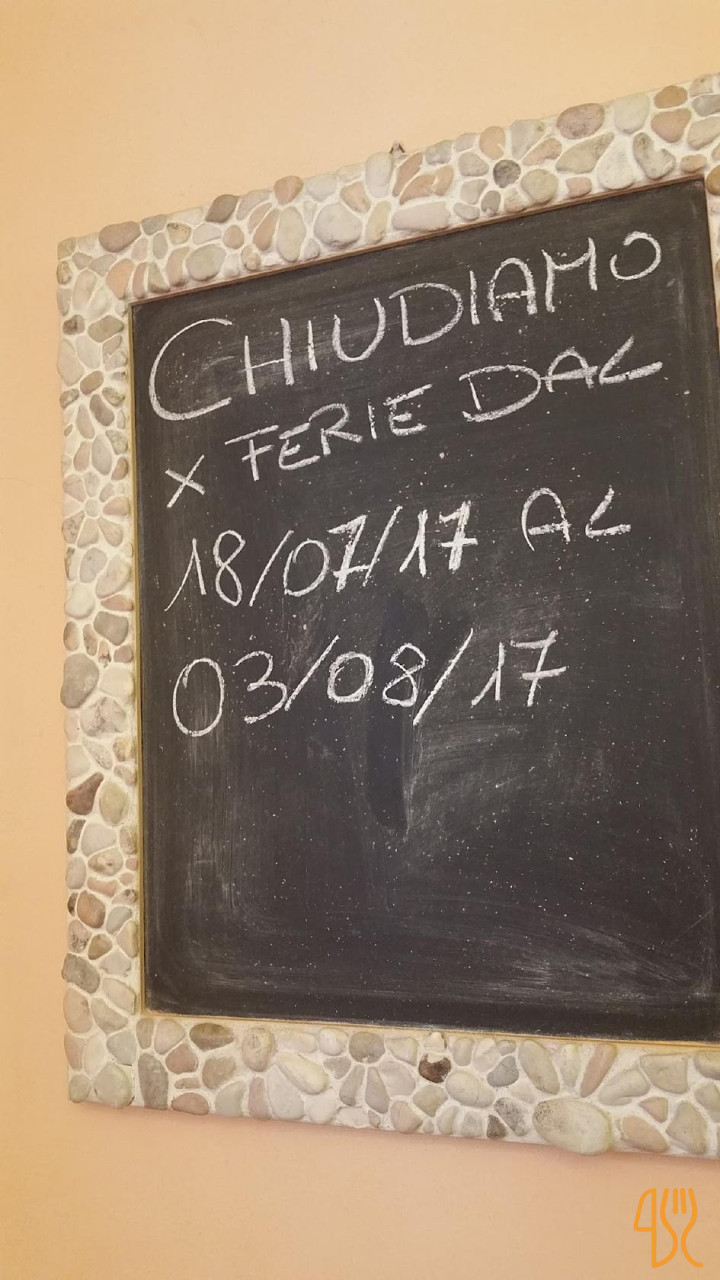 CHIUDIAMO
X FERIE DAL
18/07/17 AL
03/08/17